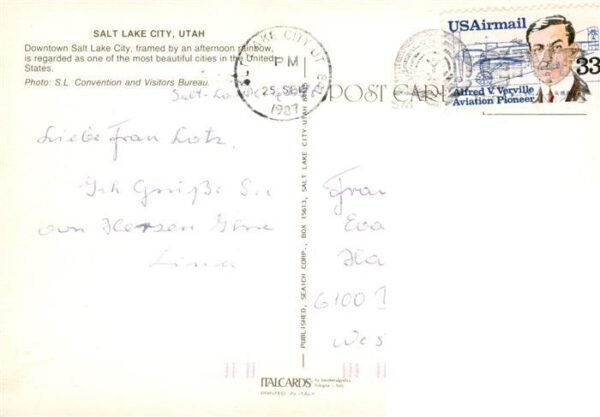 SALT LAKE CITY, UTAH
Downtown Salt Lake City, framed by an afternoon rainbow,
is regarded as one of the most beautiful cities in the United
States.
Photo: S.L. Convention and Visitors Bureau.
LAKE CITY UT
PM
25 SEP
1987
USAirmail
33
Alfred V. Verville
Aviation Pioneer
POST CAR
Liebe Frau Lotz,
Ich Grüße Sie
von Herzen Ihre
Lina
PUBLISHED, SEAICH CORP., BOX 15613, SALT LAKE CITY, UTAH
Frau
Eva
Ha
6100
Wes
ITALCARDS
PRINTED IN ITALY